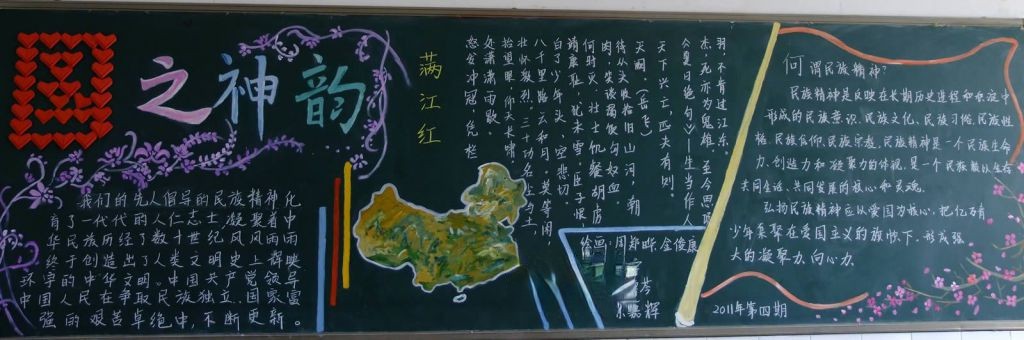 之神韵
我们的先人倡导的民族精神化
育了一代代的人仁志士凝聚着中
华民族历经了数十世纪风风雨雨
终于创造出了人类文明史上辉映
环宇的中华文明。中国共产党领导
中国人民在争取民族独立.国家富
强的艰苦卓绝中,不断更新。
满江红
怒发冲冠,凭栏
处潇潇雨歇
抬望眼,仰天长啸
壮怀激烈.三十功名尘与土
八千里路云和月.莫等闲,
白了少年头,空悲切.
靖康耻,犹未雪,臣子恨,
何时灭.壮士饥餐胡虏
肉,笑谈渴饮匈奴血
待从头收拾旧山河,朝
天阙.(岳飞)
天下兴亡,匹夫有则
《夏日绝句》—生当作人
杰,死亦为鬼雄.至今思项
羽,不肯过江东.
绘画:周郑晔.金俊康
辉
何谓民族精神?
民族精神是反映在长期历史进程和积淀中
形成的民族意识、民族文化、民族习俗、民族性
格、民族信仰、民族宗教,民族精神是一个民族生命
力、创造力和凝聚力的体现,是一个民族赖以生存
共同生活、共同发展的核心和灵魂。
弘扬民族精神应以爱国为核心,把亿万青
少年集聚在爱国主义的旗帜下,形成强
大的凝聚力、向心力.
2011年第四期